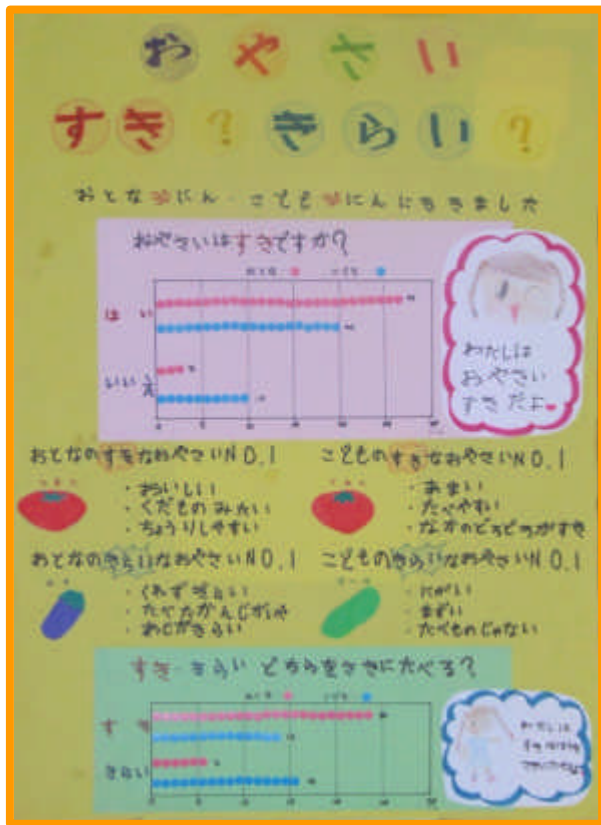 おやさい
すき？きらい？
おとな にん・こども にんにききました
おやさいはすきですか？
おとな こども
はい
いいえ
わたしは
おやさい
すきだよ
おとなのすきなおやさいNO.1
・おいしい
・くだものみたい
・ちょうりしやすい
こどものすきなおやさいNO.1
・あまい
・たべやすい
・なかのどろどろがすき
おとなのきらいなおやさいNO.1
・くわずぎらい
・たべたかんじがいや
・あじがきらい
こどものきらいなおやさいNO.1
・にがい
・まずい
・たべものじゃない
すき・きらいどちらをさきにたべる？
おとな こども
すき
きらい
わたしは